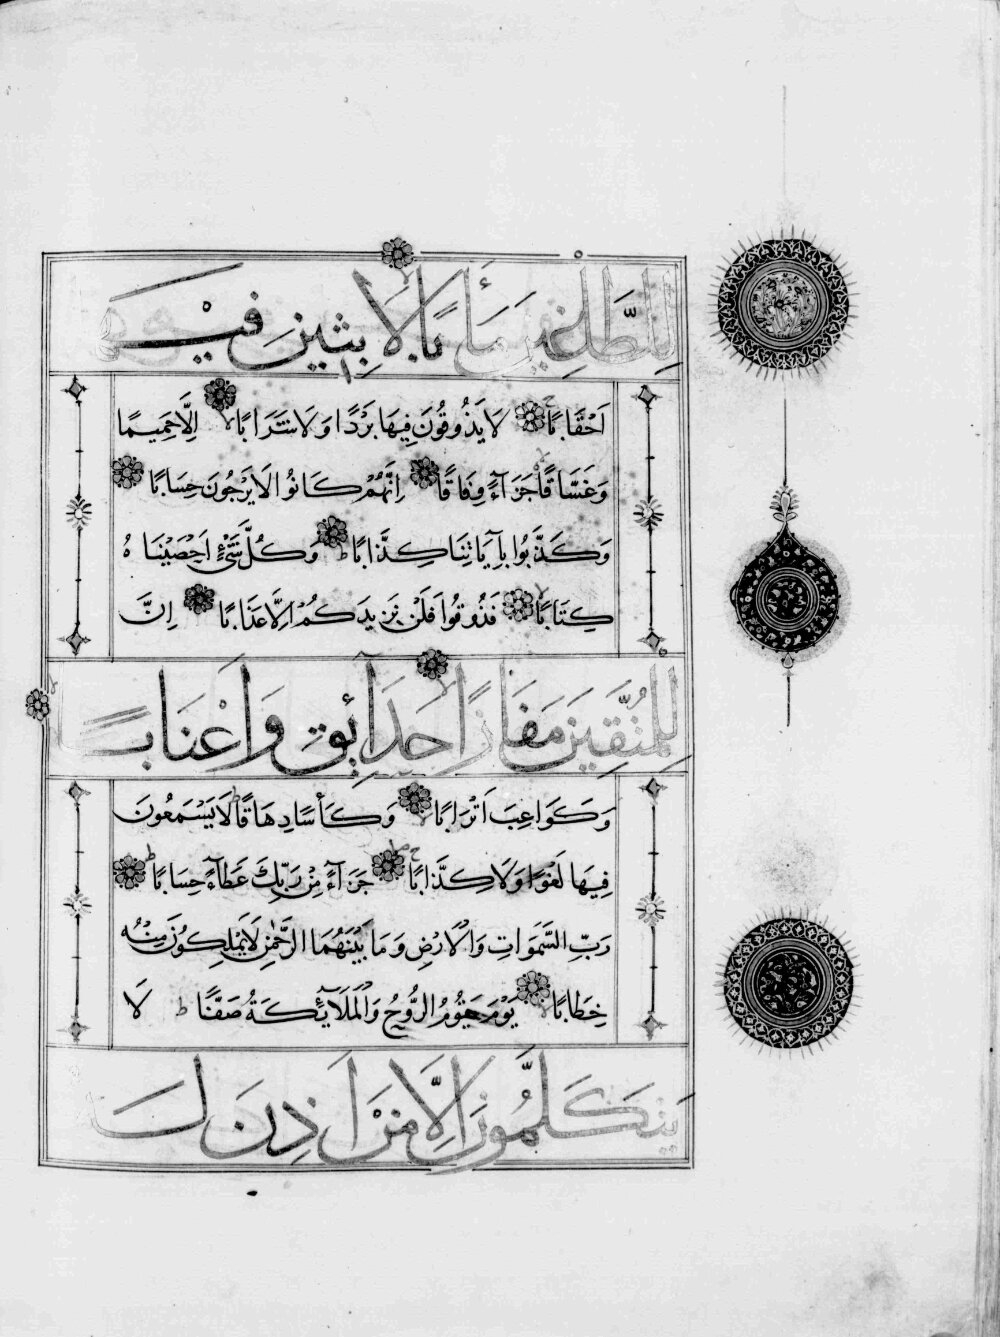 لِلطَّاغِينَ مَآبًا لَابِثِينَ فِيهَا
اَحْقَابًا لَا يَذُوقُونَ فِيهَا بَرْدًا وَلَا شَرَابًا اِلَّا حَمِيمًا
وَغَسَّاقًا جَزَآءً وِفَاقًا اِنَّهُمْ كَانُوا لَا يَرْجُونَ حِسَابًا
وَكَذَّبُوا بِآيَاتِنَا كِذَّابًا وَكُلَّ شَيْءٍ اَحْصَيْنَاهُ
كِتَابًا فَذُوقُوا فَلَنْ نَزِيدَكُمْ اِلَّا عَذَابًا اِنَّ
لِلْمُتَّقِينَ مَفَازًا حَدَآئِقَ وَاَعْنَابًا
وَكَوَاعِبَ اَتْرَابًا وَكَأْسًا دِهَاقًا لَا يَسْمَعُونَ
فِيهَا لَغْوًا وَلَا كِذَّابًا جَزَآءً مِنْ رَبِّكَ عَطَآءً حِسَابًا
رَبِّ السَّمَوَاتِ وَالْاَرْضِ وَمَا بَيْنَهُمَا الرَّحْمٰنِ لَا يَمْلِكُونَ مِنْهُ
خِطَابًا يَوْمَ يَقُومُ الرُّوحُ وَالْمَلَآئِكَةُ صَفًّا لَا
يَتَكَلَّمُونَ اِلَّا مَنْ اَذِنَ لَهُ